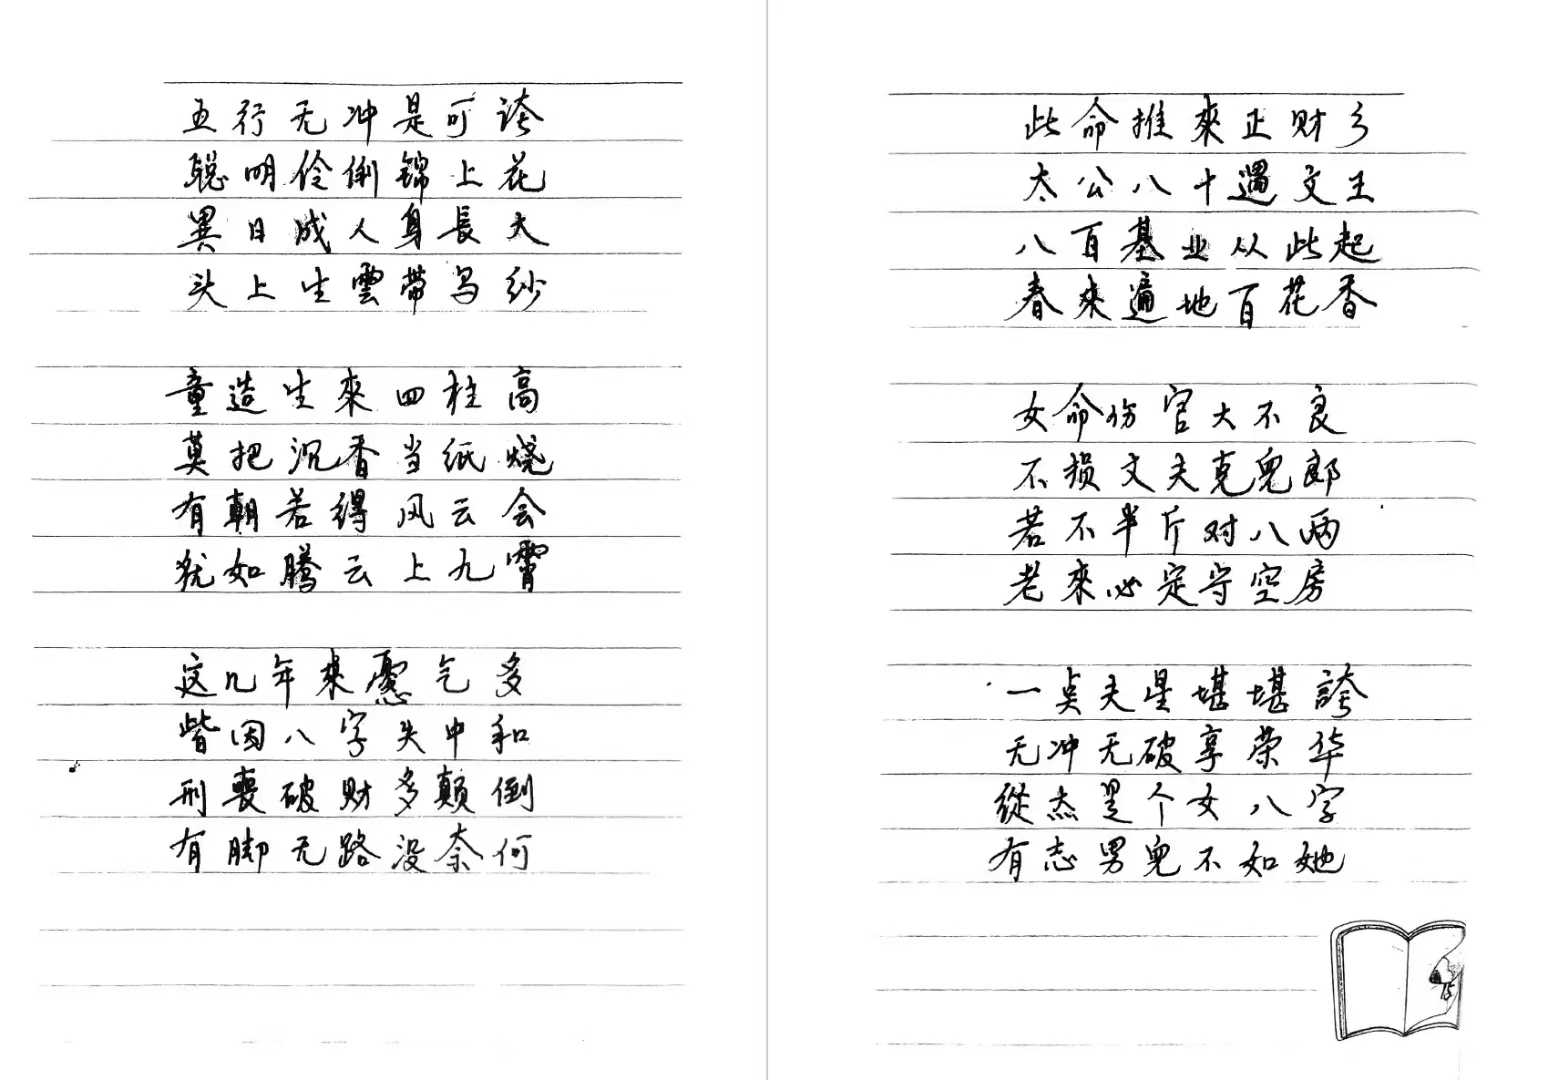 五行无冲是可誇
聪明伶俐锦上花
異日成人身長大
头上生雲带乌纱
童造生來四柱高
莫把沉香当纸烧
有朝若得风云会
犹如腾云上九霄
这几年來憂气多
皆因八字失中和
刑喪破财多颠倒
有脚无路没奈何
此命推來正财乡
太公八十遇文王
八百基业从此起
春來遍地百花香
女命伤官大不良
不损丈夫克児郎
若不半斤对八两
老來必定守空房
一奌夫星堪堪誇
无冲无破享荣华
從杰是个女八字
有志男児不如她